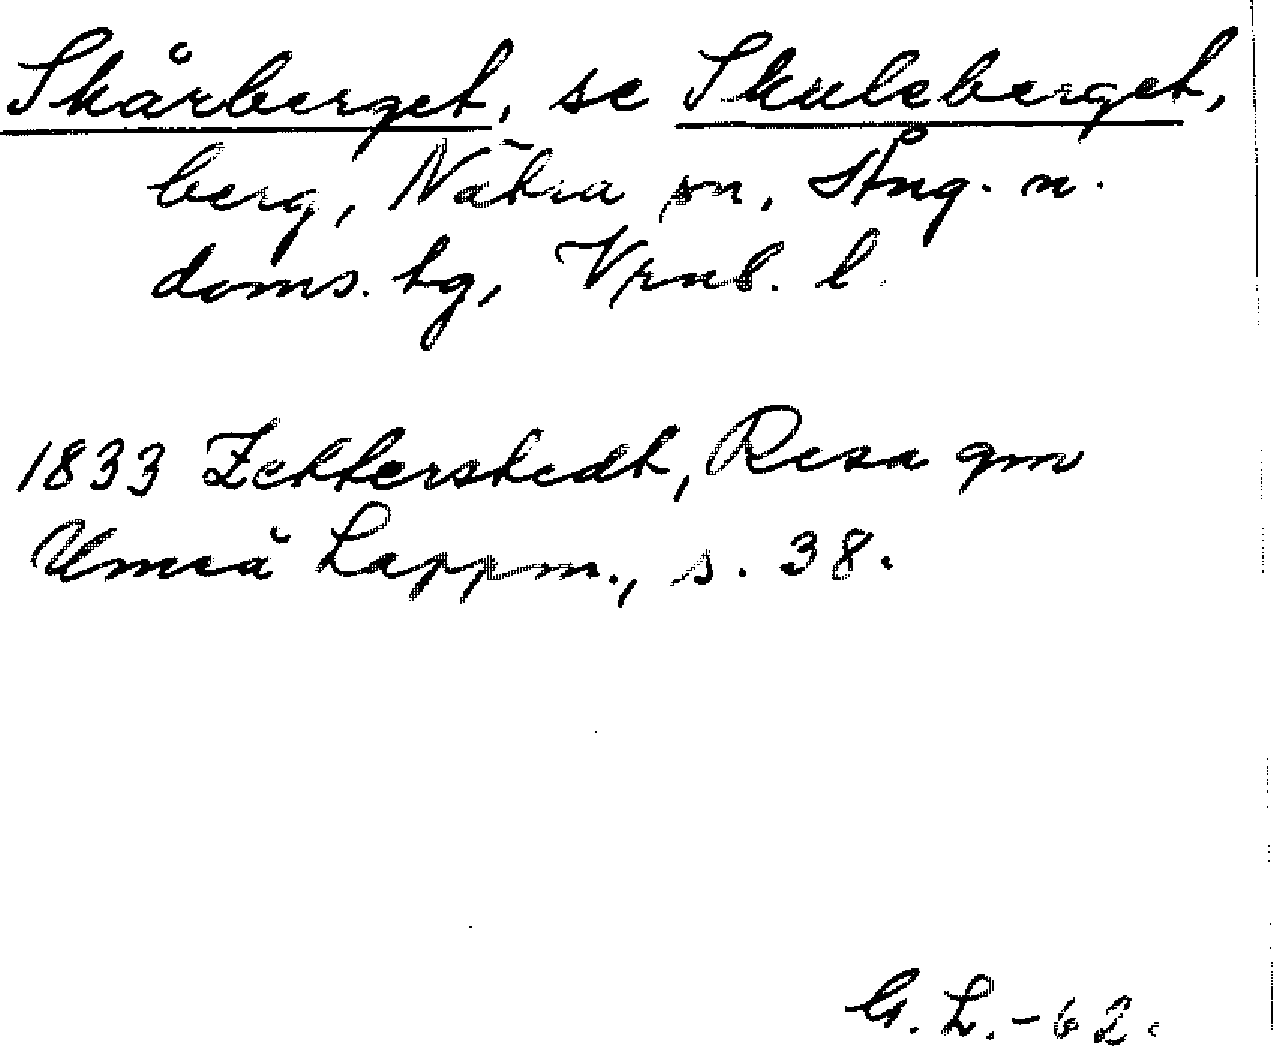 Skårberget, se Skuleberget,
berg, Nätra sn, Ång. n.
doms. hg, Vrnl. l.
1833 Zetterstedt, Resa gm
Umeå Lappm., s. 38.
G. L. - 62.